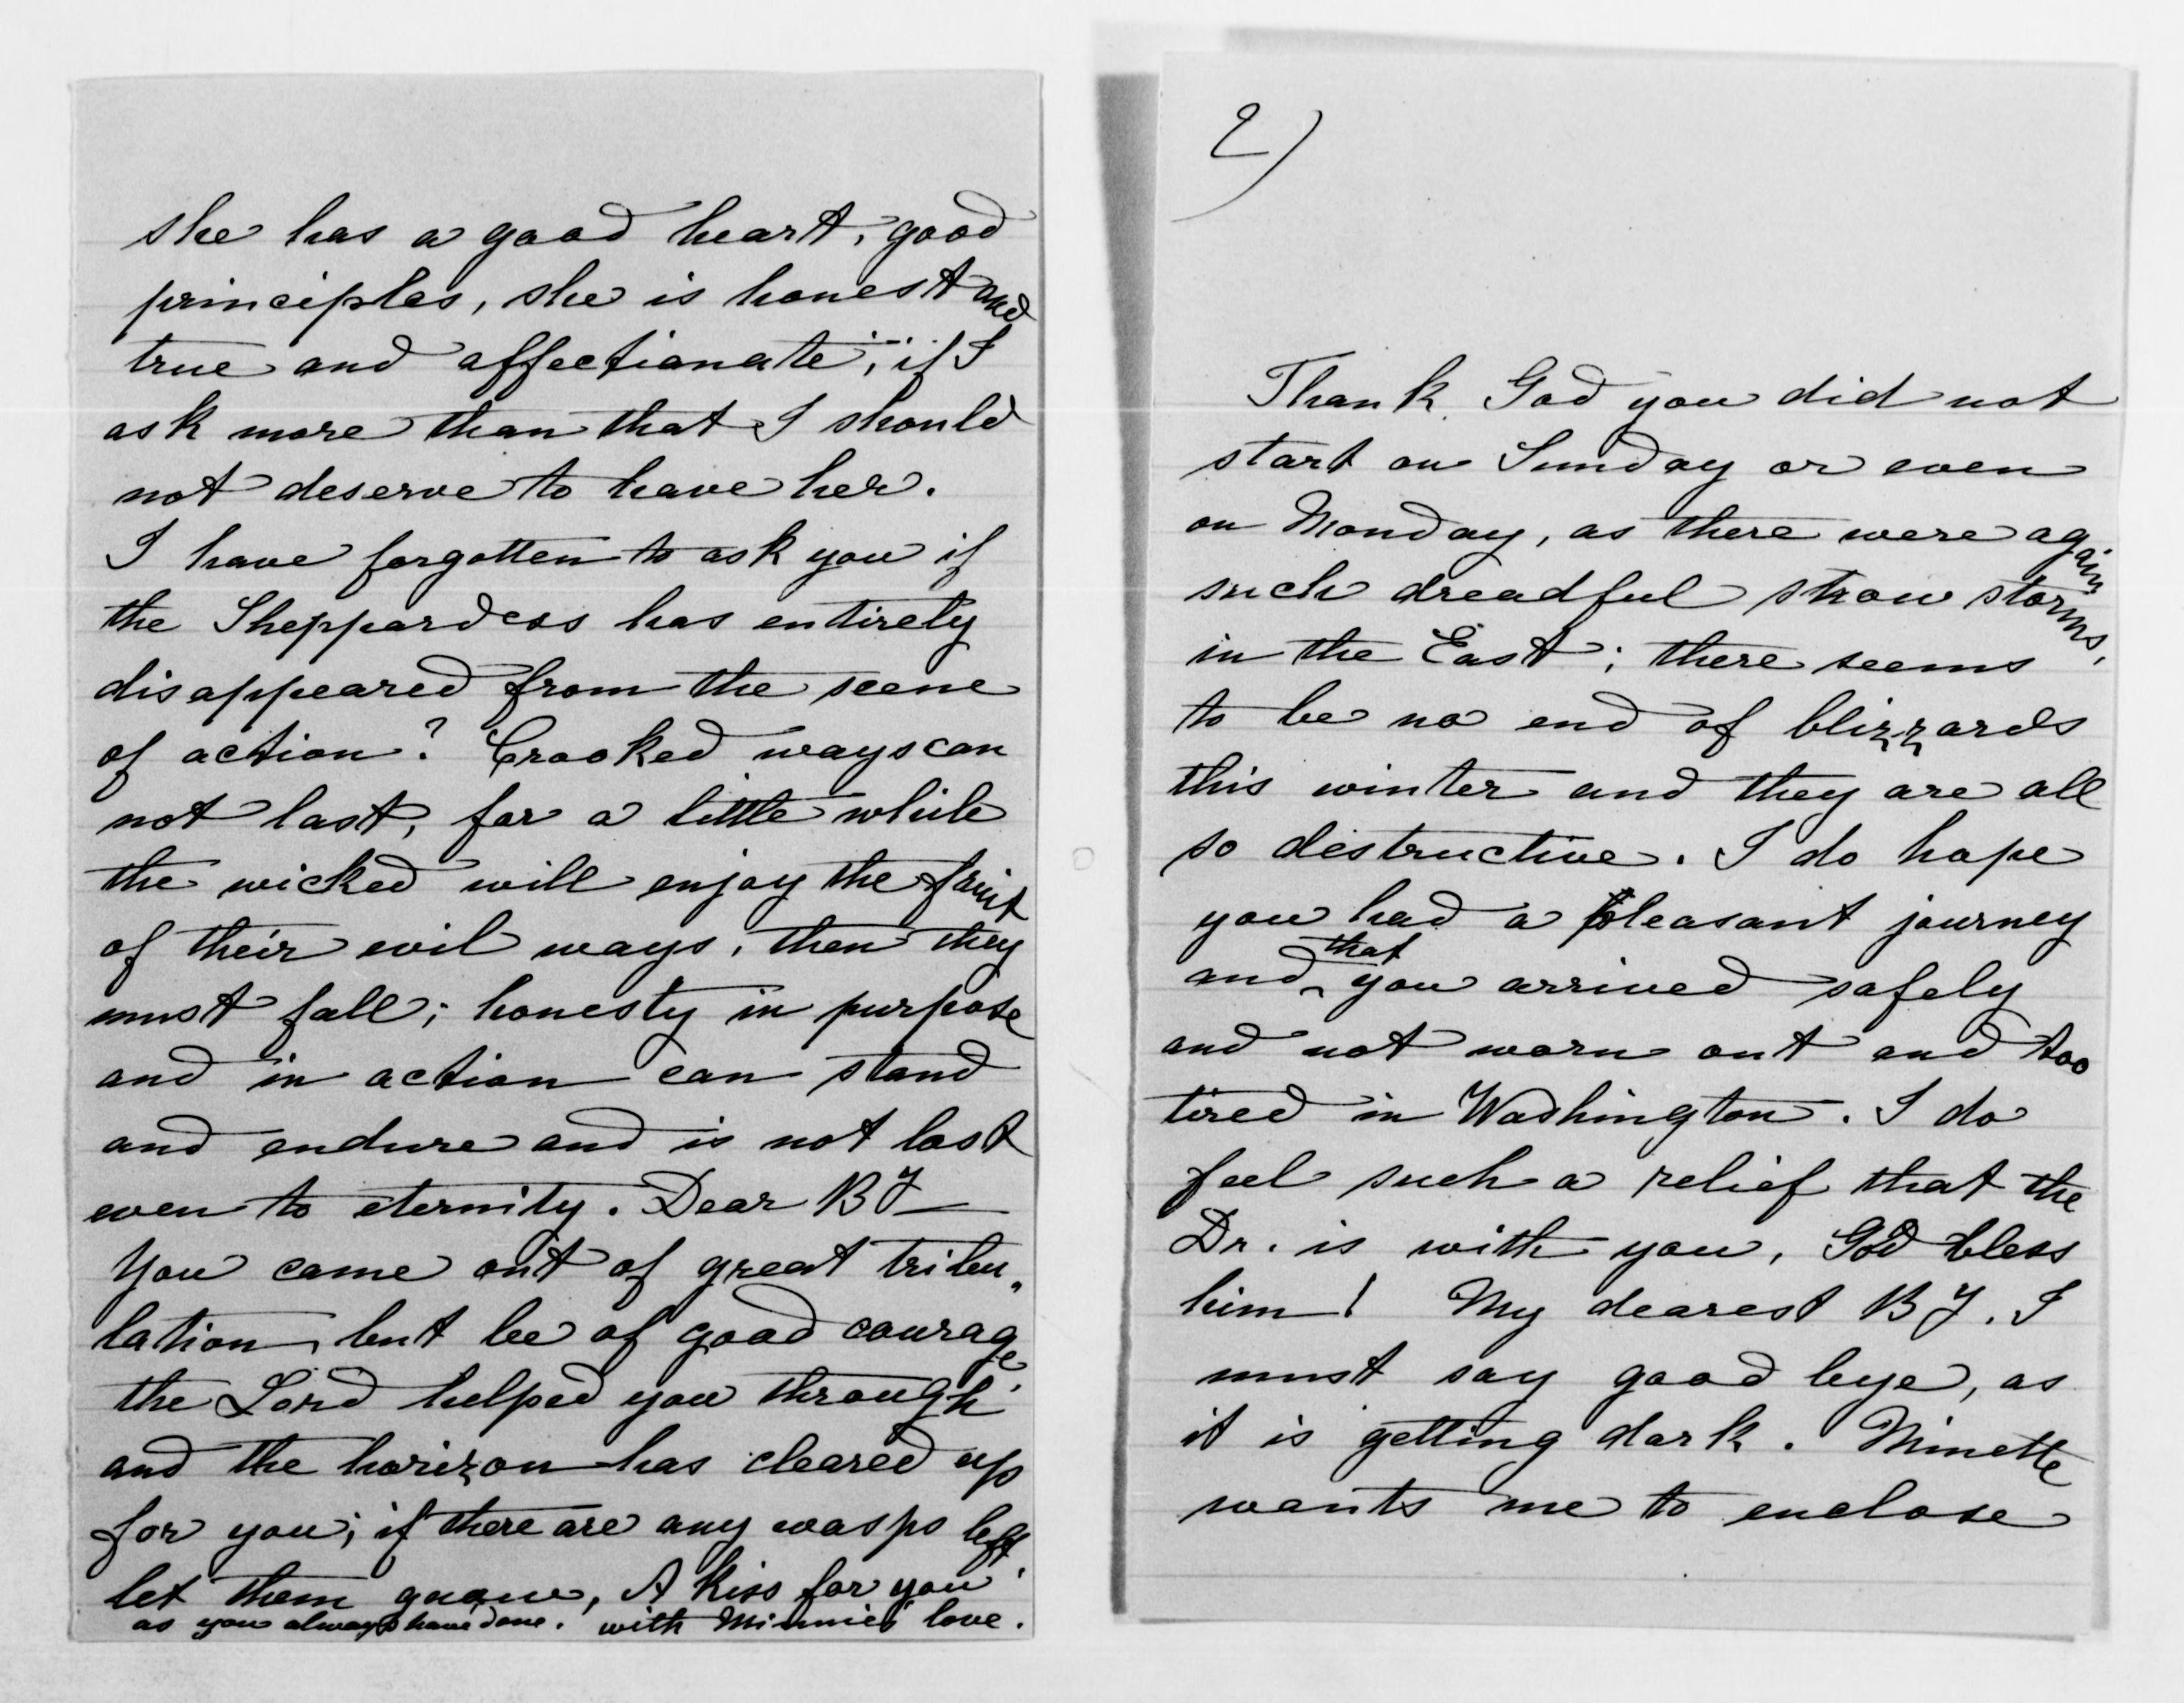 she has a good heart, good
principles, she is honest and
true and affectionate; if I
ask more than that I should
not deserve to have her.
I have forgotten to ask you if
the Sheppardess has entirely
disappeared from the scene
of action? Crooked ways can
not last, for a little while
the wicked will enjoy the fruit
of their evil ways, then they
must fall; honesty in purpose
and in action can stand
and endure and is not lost
even to eternity. Dear B J—
You came out of great tribu„
lation, but be of good courage
the Lord helped you through
and the horizon has cleared up
for you; if there are any wasps left
let them gnaw, A kiss for you
as you always have done. with Minnies' love.
2)
Thank God you did not
start on Sunday or even
on Monday, as there were again
such dreadful snow storms,
in the East; there seems
to be no end of blizzards
this winter and they are all
so destructive. I do hope
you had a pleasant journey
and that you arrived safely
and not worn out and too
tired in Washington. I do
feel such a relief that the
Dr. is with you, God bless
him! My dearest B J. I
must say good bye, as
it is getting dark. Minette
wants me to enclose